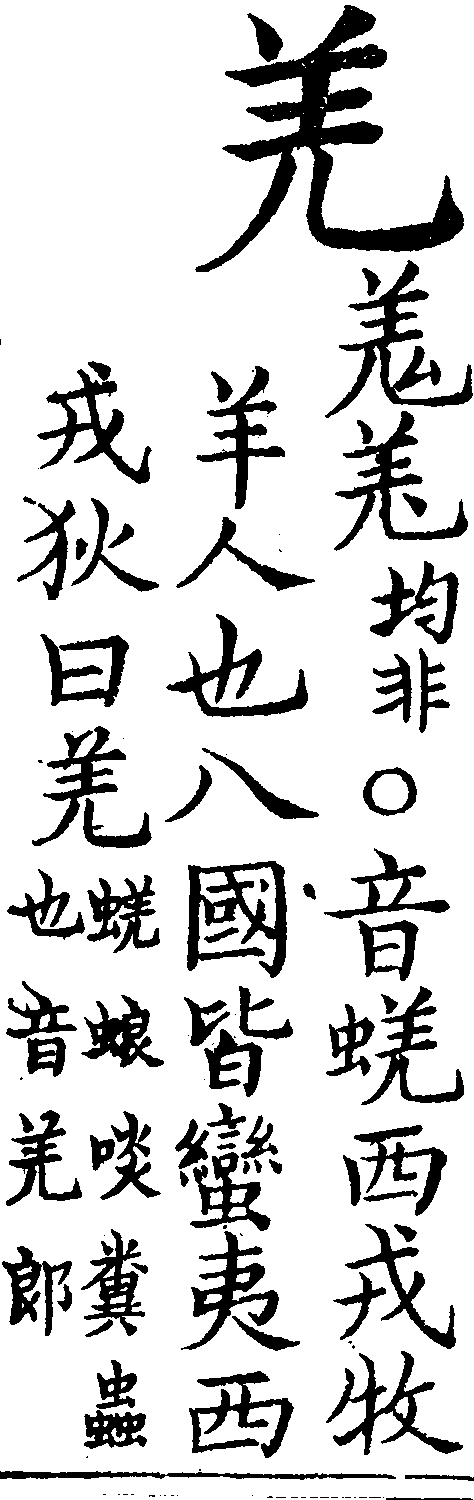 羌
羗羌均非○音蜣西戎牧
羊人也八國皆蠻夷西
戎狄曰羌
蜣蜋啖糞蟲
也音羌郎